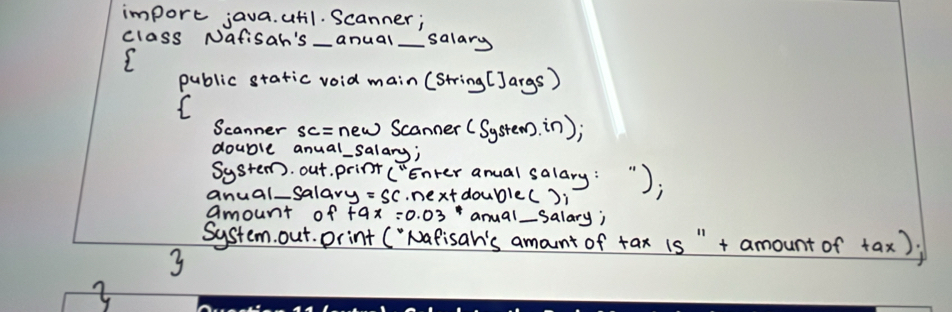 import java.util.Scanner;
class Nafisah's_anual_salary
{
public static void main (String[]args)
{
Scanner sc=new Scanner (System.in);
double anual_salary;
System.out.print ("Enter anual salary: ");
anual_salary = sc.nextdouble( );
amount of tax =0.03 * anual_salary;
System.out.print ("Nafisah's amount of tax is " + amount of tax);
}
}